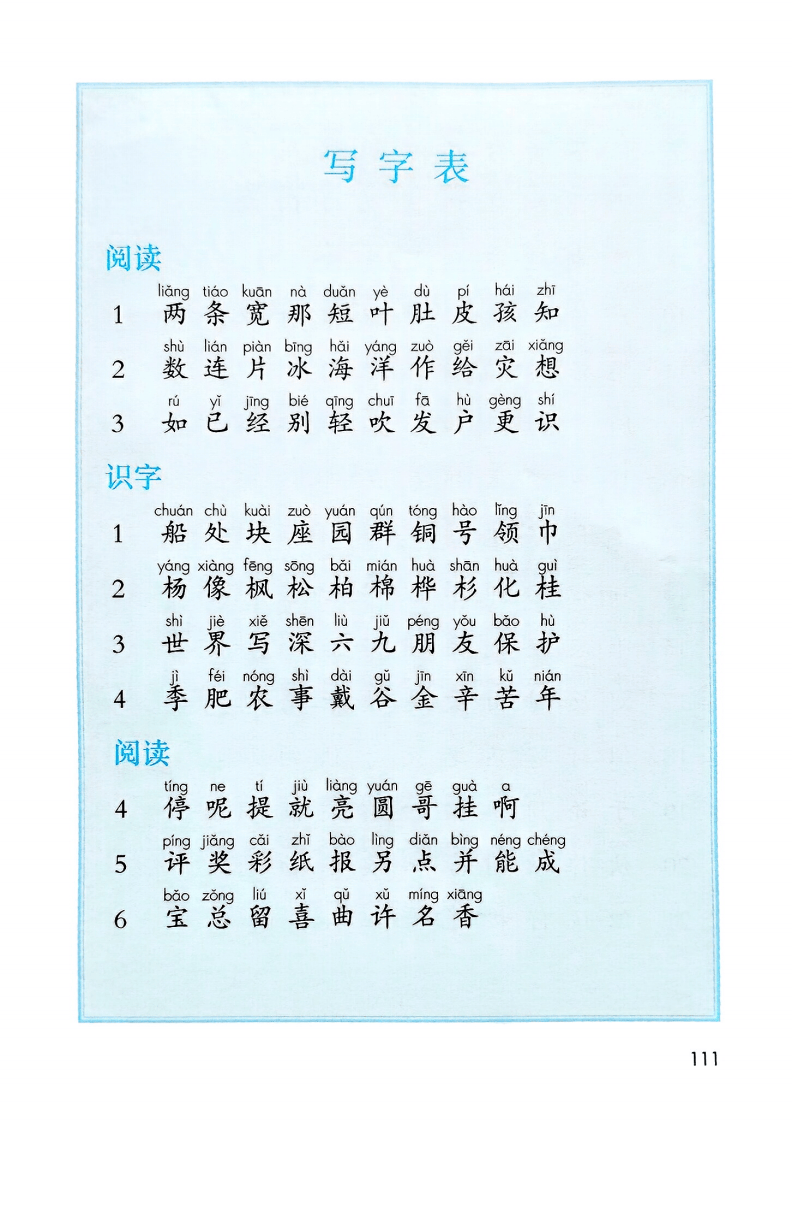 写字表
阅读
liǎng tiáo kuān nà duǎn yè dù pí hái zhī
1 两 条 宽 那 短 叶 肚 皮 孩 知
shù lián piàn bīng hǎi yáng zuò gěi zāi xiǎng
2 数 连 片 冰 海 洋 作 给 灾 想
rú yǐ jīng bié qīng chuī fā hù gèng shí
3 如 已 经 别 轻 吹 发 户 更 识
识字
chuán chù kuài zuò yuán qún tóng hào lǐng jīn
1 船 处 块 座 园 群 铜 号 领 巾
yáng xiàng fēng sōng bǎi mián huà shān huà guì
2 杨 像 枫 松 柏 棉 桦 杉 化 桂
shì jiè xiě shēn liù jiǔ péng yǒu bǎo hù
3 世 界 写 深 六 九 朋 友 保 护
jì féi nóng shì dài gǔ jīn xīn kǔ nián
4 季 肥 农 事 戴 谷 金 辛 苦 年
阅读
tíng ne tí jiù liàng yuán gē guà a
4 停 呢 提 就 亮 圆 哥 挂 啊
píng jiǎng cǎi zhǐ bào lìng diǎn bìng néng chéng
5 评 奖 彩 纸 报 另 点 并 能 成
bǎo zǒng liú xǐ qǔ xǔ míng xiāng
6 宝 总 留 喜 曲 许 名 香
111